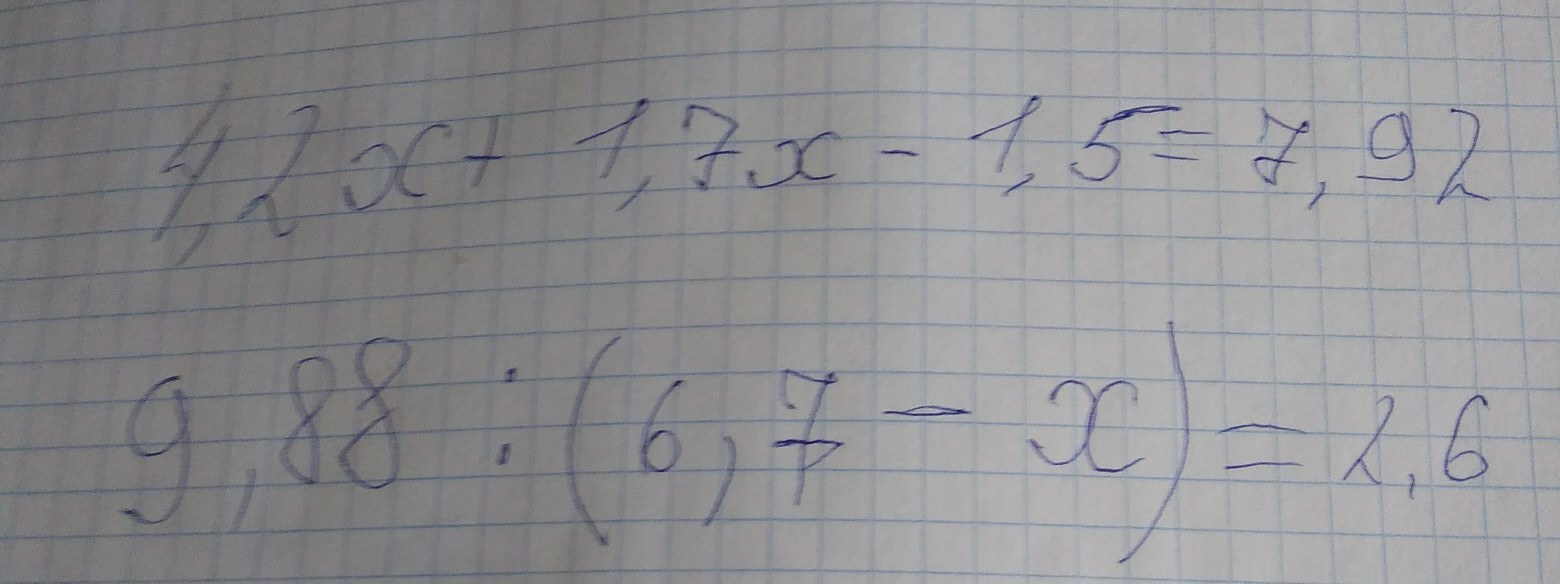 4,2x + 1,7x - 1,5 = 7,92
9,88 : (6,7 - x) = 2,6